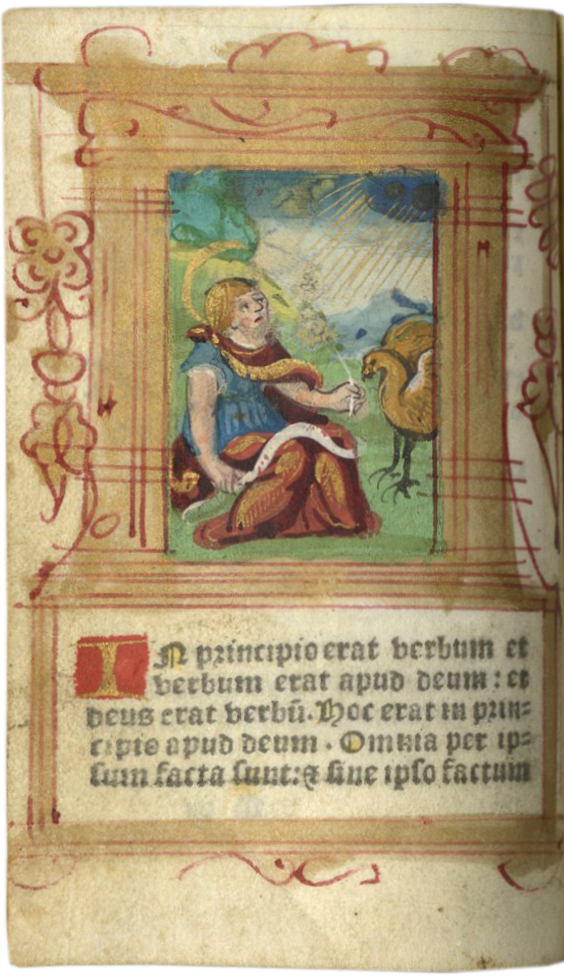 IN principio erat verbum et
verbum erat apud deum: et
deus erat verbū. Hoc erat in prin=
cipio apud deum. Omnia per ip=
sum facta sunt: ⁊ sine ipso factum